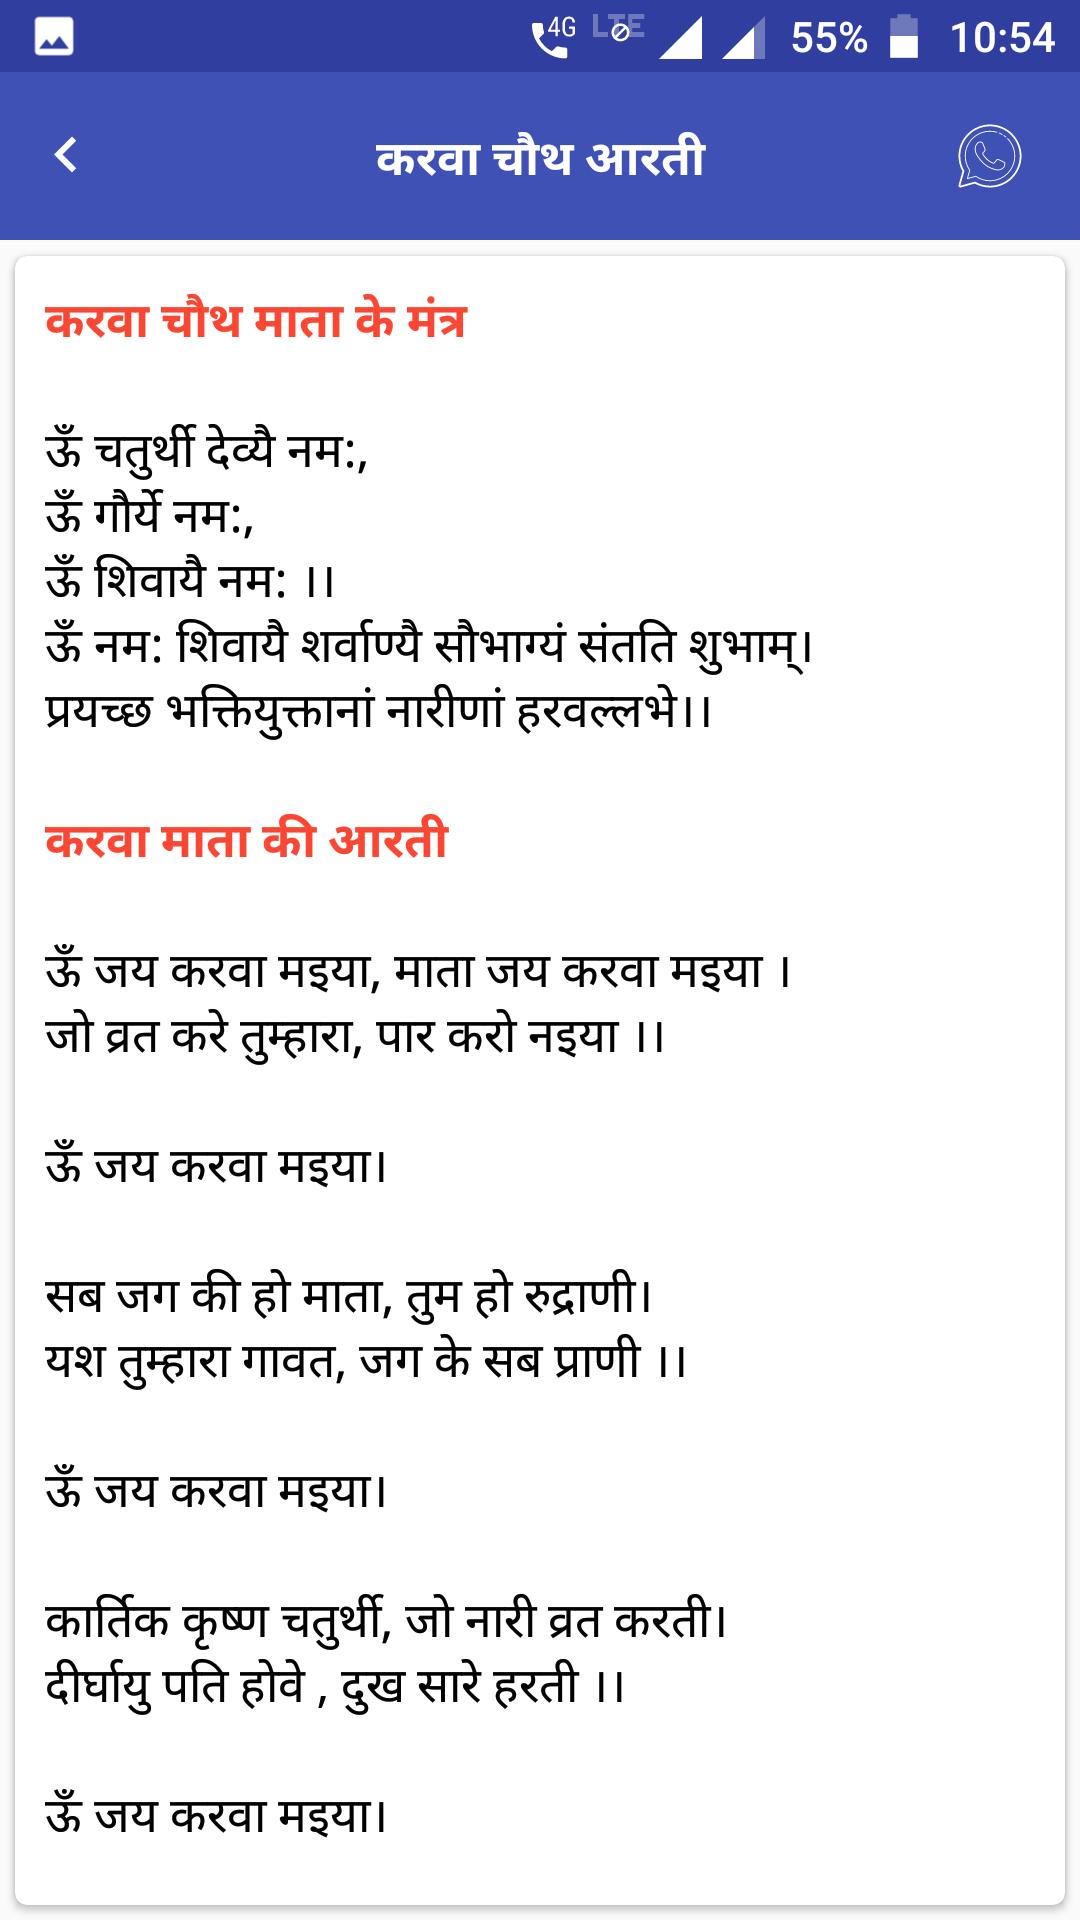 4G LTE 55% 10:54
करवा चौथ आरती
करवा चौथ माता के मंत्र
ऊँ चतुर्थी देव्यै नम:,
ऊँ गौर्ये नम:,
ऊँ शिवायै नम: ।।
ऊँ नम: शिवायै शर्वाण्यै सौभाग्यं संतति शुभाम्।
प्रयच्छ भक्तियुक्तानां नारीणां हरवल्लभे।।
करवा माता की आरती
ऊँ जय करवा मइया, माता जय करवा मइया ।
जो व्रत करे तुम्हारा, पार करो नइया ।।
ऊँ जय करवा मइया।
सब जग की हो माता, तुम हो रुद्राणी।
यश तुम्हारा गावत, जग के सब प्राणी ।।
ऊँ जय करवा मइया।
कार्तिक कृष्ण चतुर्थी, जो नारी व्रत करती।
दीर्घायु पति होवे , दुख सारे हरती ।।
ऊँ जय करवा मइया।